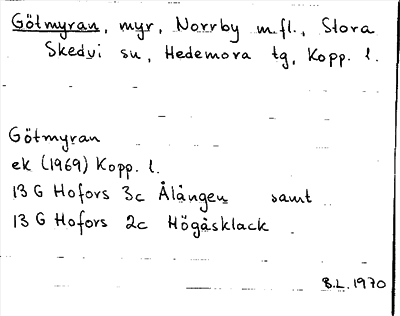 Götmyran, myr, Norrby m.fl., Stora
Skedvi sn, Hedemora tg, Kopp. l.
Götmyran
ek (1969) Kopp. l.
13 G Hofors 3c Ålången samt
13 G Hofors 2c Högåsklack
B.L. 1970